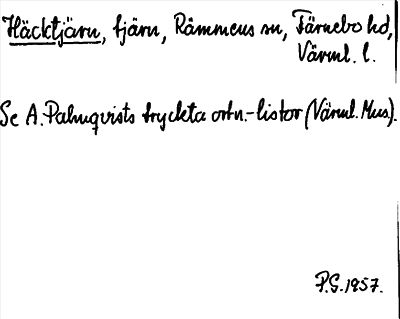 Häcktjärn, tjärn, Råmmens sn, Färnebo hd,
Värml. l.
Se A. Palmqvists tryckta ortn.-listor (Värml. Mus).
P.G. 1957.